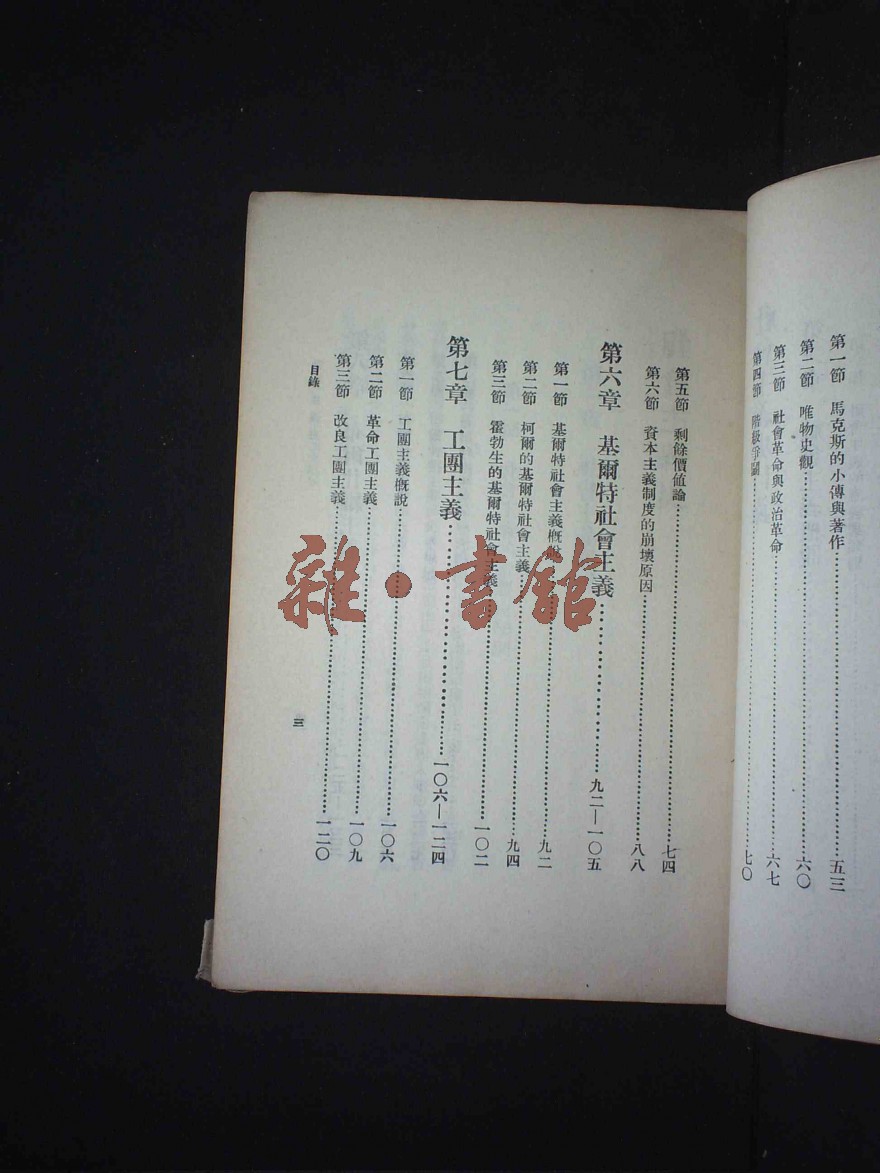 第一節 馬克斯的小傳與著作……五三
第二節 唯物史觀……六〇
第三節 社會革命與政治革命……六七
第四節 階級爭鬪……七〇
第五節 剩餘價値論……七四
第六節 資本主義制度的崩壞原因……八八
第六章 基爾特社會主義……九二—一〇五
第一節 基爾特社會主義概說……九二
第二節 柯爾的基爾特社會主義……九四
第三節 霍勃生的基爾特社會主義……一〇二
第七章 工團主義……一〇六—一二四
第一節 工團主義概說……一〇六
第二節 革命工團主義……一〇九
第三節 改良工團主義……一二〇
目錄
三
雜·書館